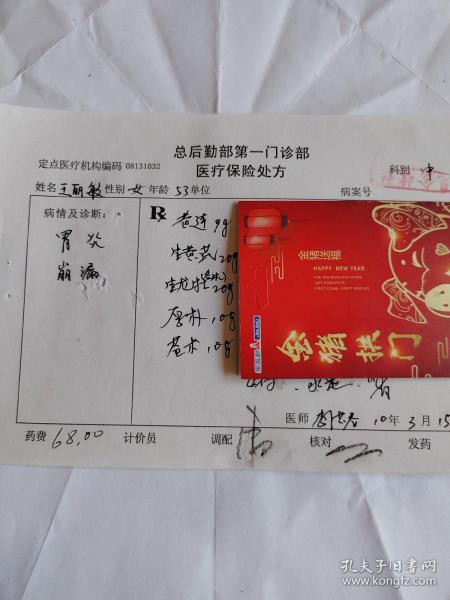 总后勤部第一门诊部
定点医疗机构编码 08131032
医疗保险处方
科别 中
姓名 王丽敏 性别 女 年龄 53 单位 病案号
病情及诊断:
胃炎
崩漏
R
黄连 9g
生黄芪 20g
20g
厚朴 10g
苍术 10g
金猪送福
HAPPY NEW YEAR
THE BIG BARGAIN THERE
ARE EXQUISITE
FIRST COME, FIRST SERVED
金猪拱门
医师 10年3月15
药费 68.00 计价员 调配 核对 发药
孔夫子旧书网
www.kongfz.com